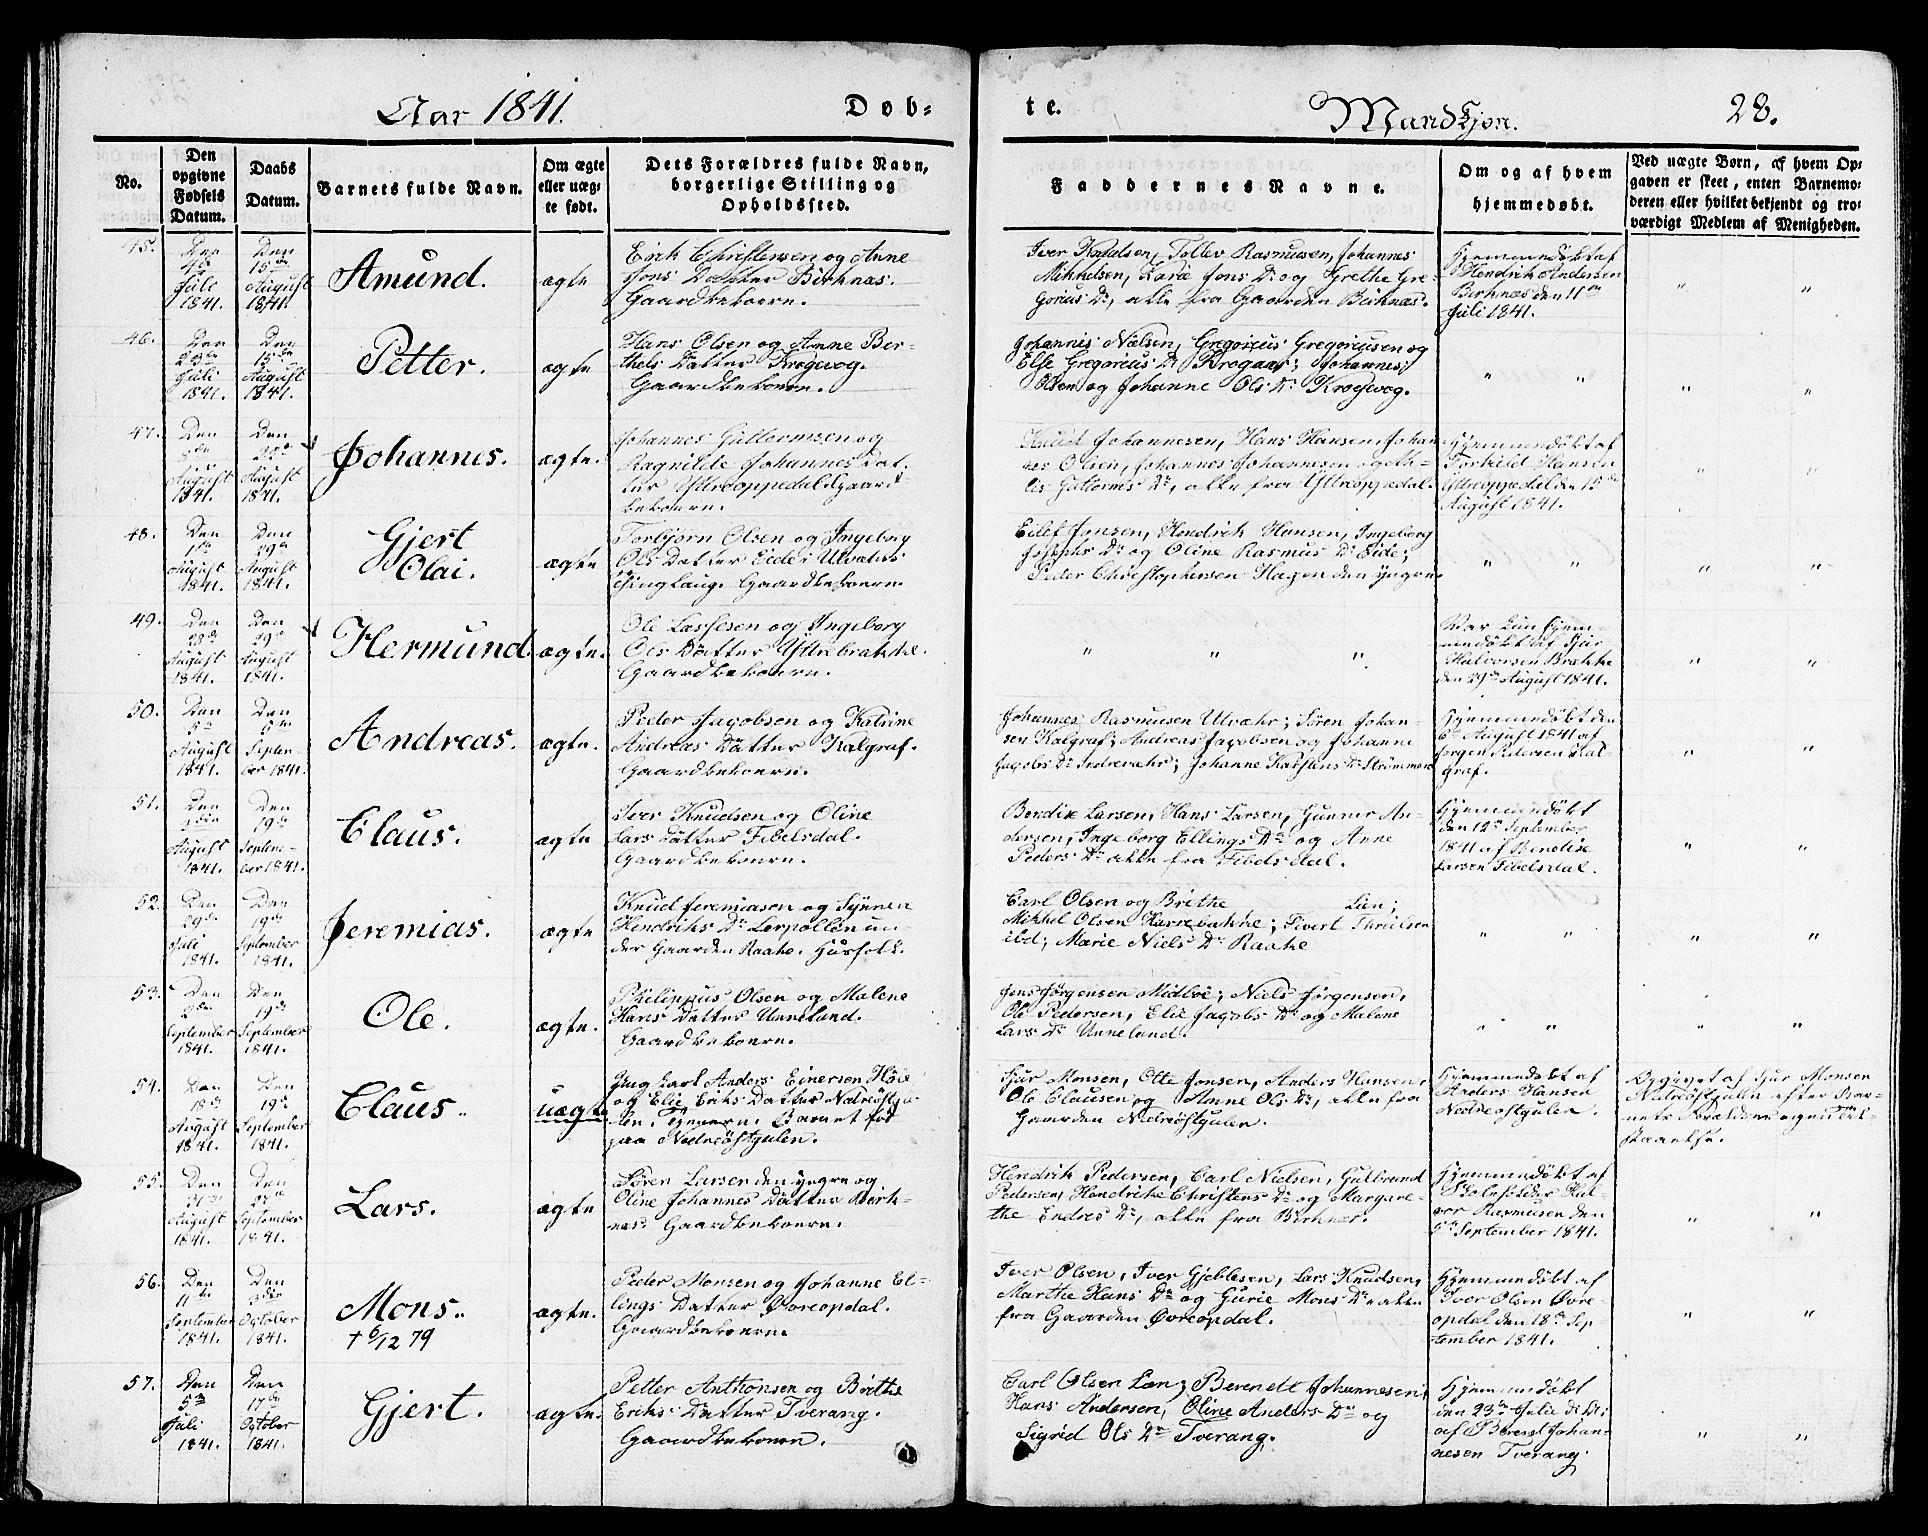 Aar 1841.
Døb-
te.
Mandkjøn.
28.
No.
Den opgivne Fødsels Datum.
Daabs Datum.
Barnets fulde Navn.
Om ægte eller uægte født.
Dets Forældres fulde Navn, borgerlige Stilling og Opholdssted.
Faddernes Navne.
Om og af hvem hjemmedøbt.
Ved uægte Børn, af hvem Opgaven er skeet, enten Barnemoderen eller hvilket bekjendt og troværdigt Medlem af Menigheden.
45.
Den
Juli
1841.
Den
15de
August
1841.
Amund.
ægte
Erik Christensen og Anne
Jons Datter Birknæs.
Gaardbeboere.
Iver Knudsen, Tollev Rasmusen, Johannes
Mikkelsen, Kari Jons Dr og Grethe Gre-
gorius Dr, alle fra Gaarden Birknæs.
Hjemmedøbt af
Hendrik Andersen
Birknæs den 11te
Juli 1841.
" "
46.
Den
23de
Juli
1841.
Den
15de
August
1841.
Petter.
ægte
Hans Olsen og Anne Ber-
thels Datter Krogevog.
Gaardbeboere.
Johannes Nielsen, Gregorius Gregoriusen og
Else Gregorius Dr Krogaas; Johannes
Olsen og Johanne Ols Dr Krogevog.
" "
" "
47.
Den
August
1841.
Den
August
1841.
Johannes.
ægte.
Johannes Guttormsen og
Ragnilde Johannes Dat-
ter Yttreoppedal. Gaard-
beboere.
Johannesen, Hans Hansen, Johan-
nes Olsen, Johannes Johannesen og
Guttorms Dr, alle fra Yttreoppedal.
Hjemmedøbt af
Torkild Hansen
Yttreoppedal den 15de
August 1841.
" "
48.
Den
1ste
August
1841.
Den
29de
August
1841.
Gjert
Olai.
ægte
Torbjørn Olsen og Ingeborg
Ols Datter Eide i Utvær
Thinglaug. Gaardbeboere.
Eilef Jonsen, Hendrik Hansen, Ingeborg
Josephs Dr og Oline Rasmus Dr Eide;
Peder Christophersen Hagen den yngre.
" "
" "
49.
Den
August
1841.
Den
29de
August
1841.
Hermund.
ægte.
Ole Lassesen og Ingeborg
Ols Datter Yttrebrække.
Gaardbeboere.
" " "
War kun hjem-
medøbt af Sjur
Halvorsen Brække
den 29de August 1841.
" "
50.
Den
5te
August
1841.
Den
5te
Septem-
ber 1841.
Andreas.
ægte.
Peder Jacobsen og Katrine
Andreas Datter Kalgraf.
Gaardbeboere.
Johannes Rasmusen Utvær; Søren Johan-
sen Kalgraf; Andreas Jacobsen og Johanne
Jacobs Dr Indrevær; Johanne Karstens Dr Strømmen.
Hjemmedøbt den
6te August 1841 af
Jørgen Pedersen Kal-
graf.
" "
51.
Den
August
1841.
Den
19de
Septem-
ber 1841.
Claus.
ægte
Iver Knudsen og Oline
Lars Datter Fibelsdal.
Gaardbeboere.
Bendix Larsen, Hans Larsen, Gunner An-
dersen, Ingeborg Ellings Dr og Anne
Peders Dr alle fra Fibelsdal.
Hjemmedøbt
den 12te September
1841 af Bendix
Larsen Fibelsdal.
" "
52.
Den
29de
Juli
1841.
Den
19de
September
1841.
Jeremias.
ægte
Knud Jeremiasen og Synnev
Hendriks Dr Lerpollen un-
der Gaarden Raake. Husfolk.
Carl Olsen og Brithe Lien;
Mikkel Olsen Karrebakke; Sivert
ibd; Marie Niels Dr Raake
" "
" "
53.
Den
September
1841.
Den
19de
September
1841.
Ole.
ægte.
Philippus Olsen og Malene
Hans Datter Unneland.
Gaardbeboere.
Jens Jørgensen Midbøe; Niels Jørgensen,
Ole Pedersen, Elie Jacobs Dr og Malene
Lars Dr Unneland.
" "
" "
54.
Den
18de
August
1841.
Den
19de
September
1841.
Claus.
uægte
Ung Karl Anders Einersen Høie
og Elie Eriks Datter Nedreøstgu-
len. Barnet fød
paa Nedreøstgulen.
Sjur Monsen, Otte Jonsen, Anders Hansen,
Ole Clausen og Anne Ols Dr, alle fra
Gaarden Nedreøstgulen.
Hjemmedøbt af
Anders Hansen
Nedreøstgulen.
Opgivet af Sjur Monsen
Nedreøstgulen efter Bar-
nets Forældres egen Til-
staaelse.
55.
Den
August
1841.
Den
September
1841.
Lars.
ægte
Søren Larsen den yngre og
Oline Johannes Datter Birk-
næs. Gaardbeboere.
Hendrik Pedersen, Carl Nielsen, Gulbrand
Pedersen, Hendrike Christens Dr og Margare-
the Endres Dr, alle fra Birknæs.
Hjemmedøbt af
Skoleholder Hal-
vor Rasmusen den
5te September 1841.
" "
56.
Den
11te
September
1841.
Den
3die
October
1841.
Mons.
† 6/12 79
ægte.
Peder Monsen og Johanne El-
lings Datter Øvreopdal.
Gaardbeboere.
Iver Olsen, Iver Gjeblesen, Lars Knudsen,
Marthe Hans Dr og Gurie Mons Dr alle
fra Gaarden Øvreopdal.
Hjemmedøbt af
Iver Olsen Øvre-
opdal den 18de Sep-
tember 1841.
" "
57.
Den
5te
Juli
1841.
Den
17de
October
1841.
Gjert.
ægte.
Petter Anthonsen og Brithe
Eriks Datter Tverang.
Gaardbeboere.
Carl Olsen Lien; Berendt Johannesen,
Hans Andersen, Oline Anders Dr og
Sigrid Ols Dr Tverang.
Hjemmedøbt
den 23de Julie
af Berent Johan-
nesen Tverang.
" "